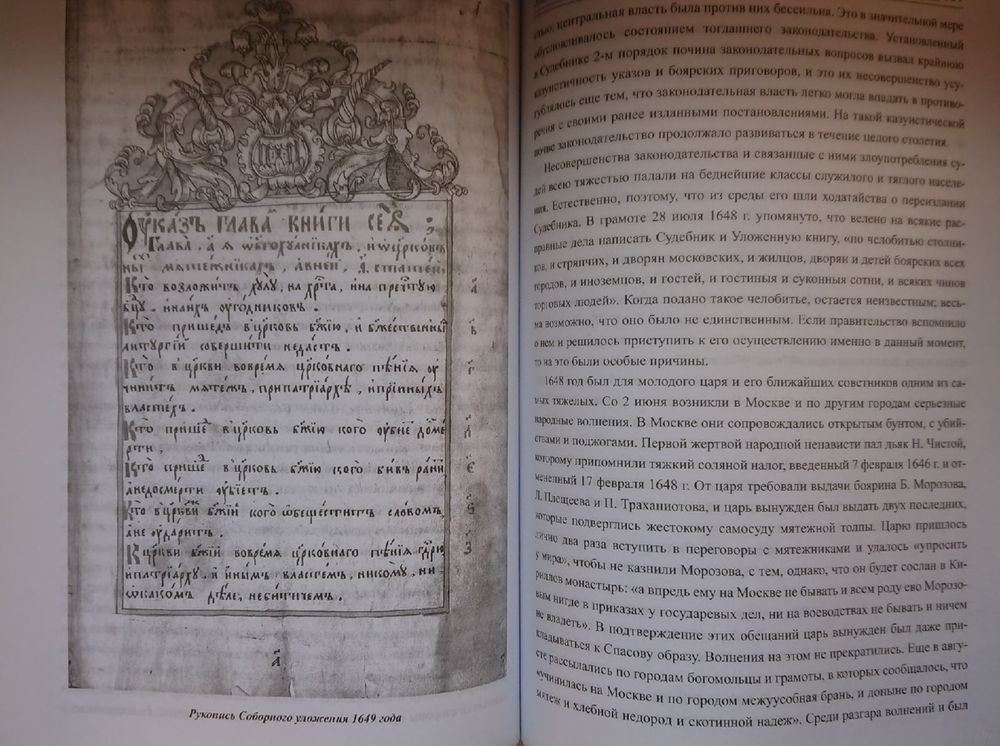 УКАЗЪ ГЛАВАМ КНИГИ СЕѦ
Глава, а҃ я ѡ богохулникахъ, и ѡ церковъ
ны мятежникахъ, а в ней, ѳ҃ статей
Кто возложитъ хулу, на гд҃а, и на прч҃тую
бц҃у. и на ихъ оугодников.
а҃
Кто пришедъ в црк҃овь бж҃ию, и бж҃ественныя
литоргии совершити недастъ.
в҃
Кто в црк҃ви вовремя црк҃овнаго пѣния оу
чинитъ мятеж, припатриархѣ, и при иных
властех.
г҃
Кто прише в црк҃овь бж҃ию кого оубие до сме
рти.
д҃
Кто прише в црк҃овь бж҃ию кого бив рани
анедосмерти оубиетъ.
є҃
Кто в црк҃ви бж҃ии кого ѡбещеститъ словомъ,
ане оударитъ.
ѕ҃
В црк҃ви бж҃ии вовремя црк҃овнаго пѣния гдр҃ю
ипатриарху. и инымъ властемъ, никому, ни
ѡкакомъ дѣле, небитичемъ.
з҃
а҃
Рукопись Соборного уложения 1649 года
стью; центральная власть была против них бессильна. Это в значительной мере
обусловливалось состоянием тогдашнего законодательства. Установленный
в Судебнике 2-м порядок почина законодательных вопросов вызвал крайнюю
казуистичность указов и боярских приговоров, и это их несовершенство усу-
гублялось еще тем, что законодательная власть легко могла впадать в противо-
речия с своими ранее изданными постановлениями. На такой казуистической
почве законодательство продолжало развиваться в течение целого столетия.
Несовершенства законодательства и связанные с ними злоупотребления су-
дей всею тяжестью падали на беднейшие классы служилого и тяглого населе-
ния. Естественно, поэтому, что из среды его шли ходатайства о переиздании
Судебника. В грамоте 28 июля 1648 г. упомянуто, что велено на всякие рас-
правные дела написать Судебник и Уложенную книгу, «по челобитью столни-
ков, и стряпчих, и дворян московских, и жилцов, дворян и детей боярских всех
городов, и иноземцов, и гостей, и гостиныя и суконныя сотни, и всяких чинов
торговых людей». Когда подано такое челобитье, остается неизвестным; весь-
ма возможно, что оно было не единственным. Если правительство вспомнило
о нем и решилось приступить к его осуществлению именно в данный момент,
то на это были особые причины.
1648 год был для молодого царя и его ближайших советников одним из са-
мых тяжелых. Со 2 июня возникли в Москве и по другим городам серьезные
народные волнения. В Москве они сопровождались открытым бунтом, с убий-
ствами и поджогами. Первой жертвой народной ненависти пал дьяк Н. Чистой,
которому припомнили тяжкий соляной налог, введенный 7 февраля 1646 г. и от-
мененный 17 февраля 1648 г. От царя требовали выдачи боярина Б. Морозова,
Л. Плещеева и П. Траханиотова, и царь вынужден был выдать двух последних,
которые подверглись жестокому самосуду мятежной толпы. Царю пришлось
лично два раза вступить в переговоры с мятежниками и удалось «упросить
у мира», чтобы не казнили Морозова, с тем, однако, что он будет сослан в Ки-
риллов монастырь: «а впредь ему на Москве не бывать и всем роду ево Морозо-
вым нигде в приказах у государевых дел, ни на воеводствах не бывать и ничем
не владеть». В подтверждение этих обещаний царь вынужден был даже при-
кладываться к Спасову образу. Волнения на этом не прекратились. Еще в авгу-
сте рассылались по городам богомольцы и грамоты, в которых сообщалось, что
«учинилась на Москве и по городом межуусобная брань, и доныне по городом
мятеж и хлебной недород и скотинной падеж». Среди разгара волнений и был